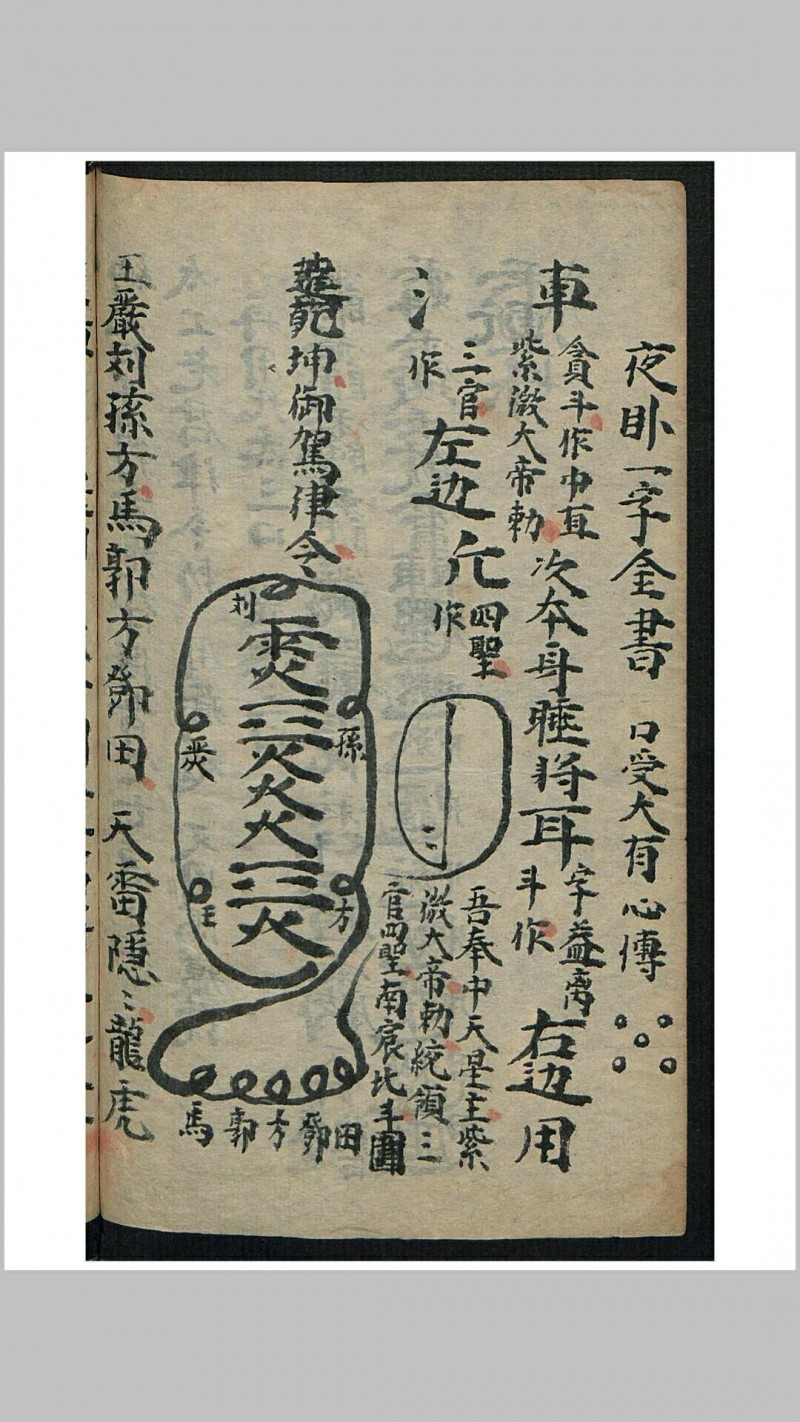 夜卧一字全書 口受大有心傳
車
貪斗作中直
紫微大帝勅
次本身睡将耳
字益离
斗作
右边用
氵
三官
作
左边
四聖
作
吾奉中天星主紫
微大帝勅統領三
官四聖南宸北斗團
乾坤御駕律令
刘
孫
王
方
馬郭方鄧田
王嚴刘孫方馬郭方鄧田 天雷隱〻龍虎